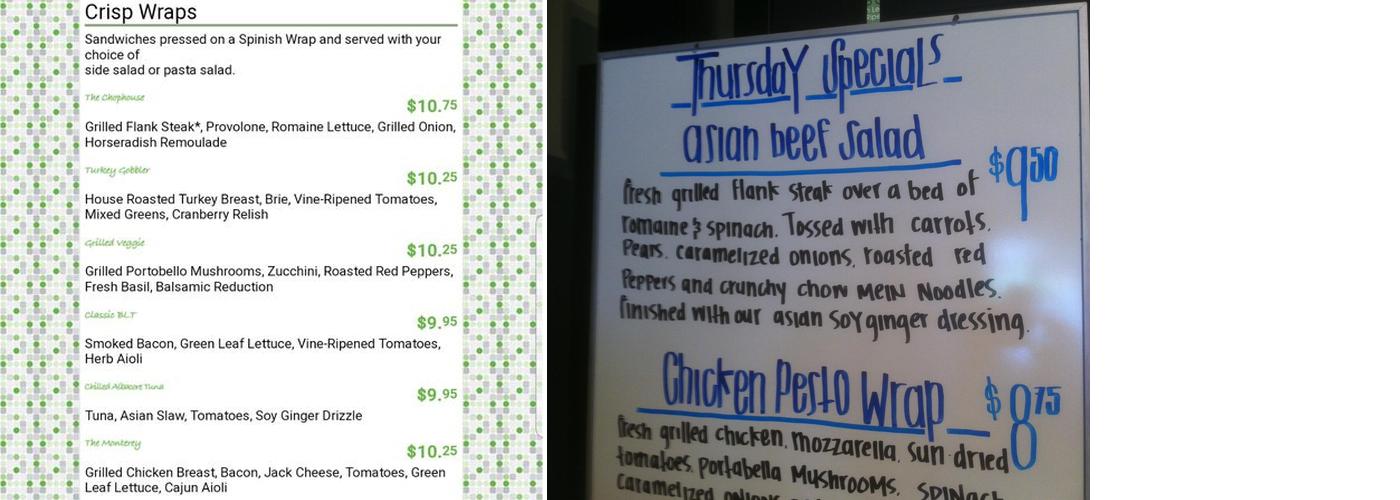 Crisp Wraps
Sandwiches pressed on a Spinish Wrap and served with your
choice of
side salad or pasta salad.
The Chophouse
$10.75
Grilled Flank Steak*, Provolone, Romaine Lettuce, Grilled Onion,
Horseradish Remoulade
Turkey Gobbler
$10.25
House Roasted Turkey Breast, Brie, Vine-Ripened Tomatoes,
Mixed Greens, Cranberry Relish
Grilled Veggie
$10.25
Grilled Portobello Mushrooms, Zucchini, Roasted Red Peppers,
Fresh Basil, Balsamic Reduction
Classic BLT
$9.95
Smoked Bacon, Green Leaf Lettuce, Vine-Ripened Tomatoes,
Herb Aioli
Chilled Albacore Tuna
$9.95
Tuna, Asian Slaw, Tomatoes, Soy Ginger Drizzle
The Monterey
$10.25
Grilled Chicken Breast, Bacon, Jack Cheese, Tomatoes, Green
Leaf Lettuce, Cajun Aioli
Thursday Specials
asian beef salad
$9.50
fresh grilled flank steak over a bed of
romaine & spinach. Tossed with carrots,
Pears, caramelized onions, roasted red
Peppers and crunchy chow mein Noodles.
finished with our asian soy ginger dressing.
Chicken Pesto Wrap
$8.75
fresh grilled chicken, mozzarella, sun-dried
tomatoes, portabella Mushrooms, spinach
Caramelized onions